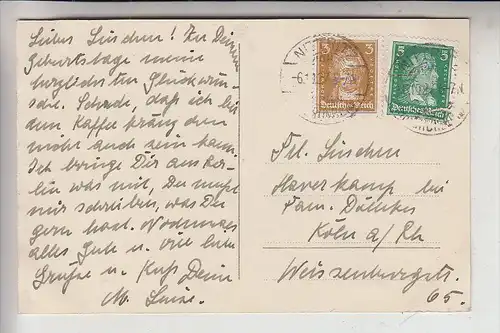 Liebes Luischen! Zu Deinem
Geburtstage meine
herzlichsten Glückwün-
sche. Schade, daß ich bei
dem Kaffee kränzchen
nicht auch sein kann.
Ich bringe Dir aus Ber-
lin was mit, Du mußt
mir schreiben, was Du
gern hast. Nochmals
alles Gute u. viele liebe
Grüße u. Kuß Deine
M. Luise.
3 3
Deutsches Reich
5 5
Deutsches Reich
Frl. Luischen
Haverkamp bei
Fam.
Köln a/Rh
Weissenburgstr.
65.